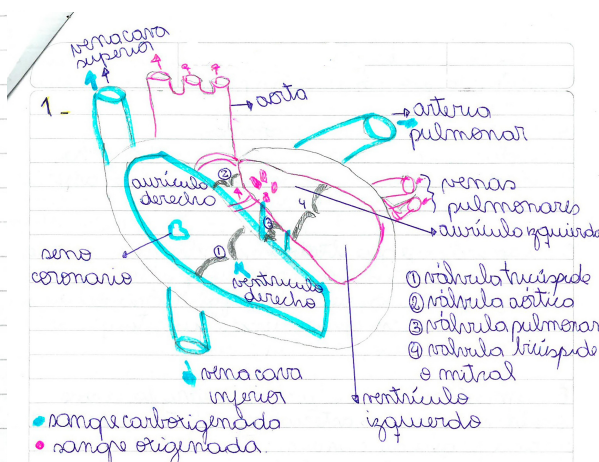 vena cava
superior
1-
aorta
arteria
pulmonar
venas
pulmonares
aurículo izquierdo
aurículo
derecho
2
4
3
1
seno
coronario
ventriculo
derecho
① válvula tricúspide
② válvula aórtica
③ válvula pulmonar
④ válvula bicúspide
o mitral
vena cava
inferior
ventrículo
izquierdo
sangre carboxigenada
sangre oxigenada.